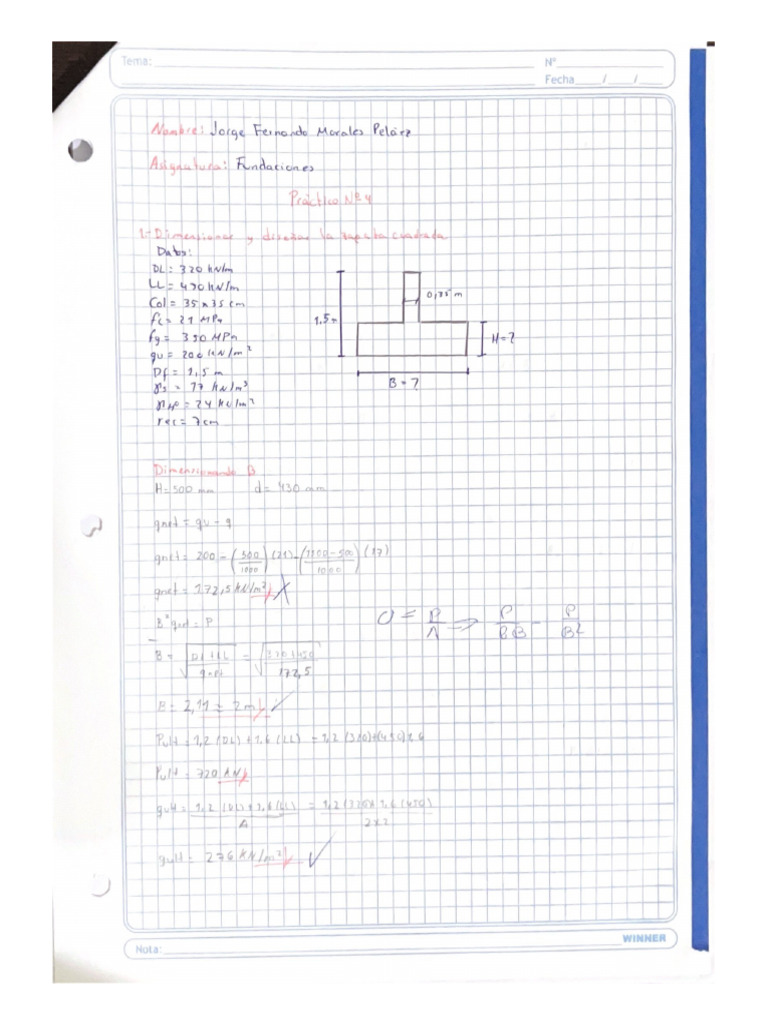 Tema:
Nº
Fecha / /
Nombre: Jorge Fernando Morales Peláez
Asignatura: Fundaciones
Práctico Nº 4
1.- Dimensionar y diseñar la zapata cuadrada
Datos:
DL = 320 kN/m
LL = 450 kN/m
Col = 35 x 35 cm
fc = 21 MPa
fy = 350 MPa
qu = 200 kN/m²
Df = 1,5 m
γs = 17 kN/m³
= 24 kN/m³
rec = 7cm
1.5m
0,35 m
H = ?
B = ?
Dimensionando B
H = 500 mm d = 430 mm
qnet = qu - q
qnet = 200 - (500/1000) (24) - (1500-500/1000) (17)
qnet = 172,5 kN/m²
B² qnet = P
B = √(DL+LL/qnet) = √(320+450/172,5)
B = 2,11 = 2m
Pult = 1,2 (DL) + 1,6 (LL) = 1,2 (320)+(450)1,6
Pult = 720 kN
qult = 1,2 (DL) + 1,6 (LL)/A = 1,2(320)+1,6(450)/2x2
qult = 276 kN/m²
σ = P/A ⇒ P/B·B = P/B²
Nota:
WINNER